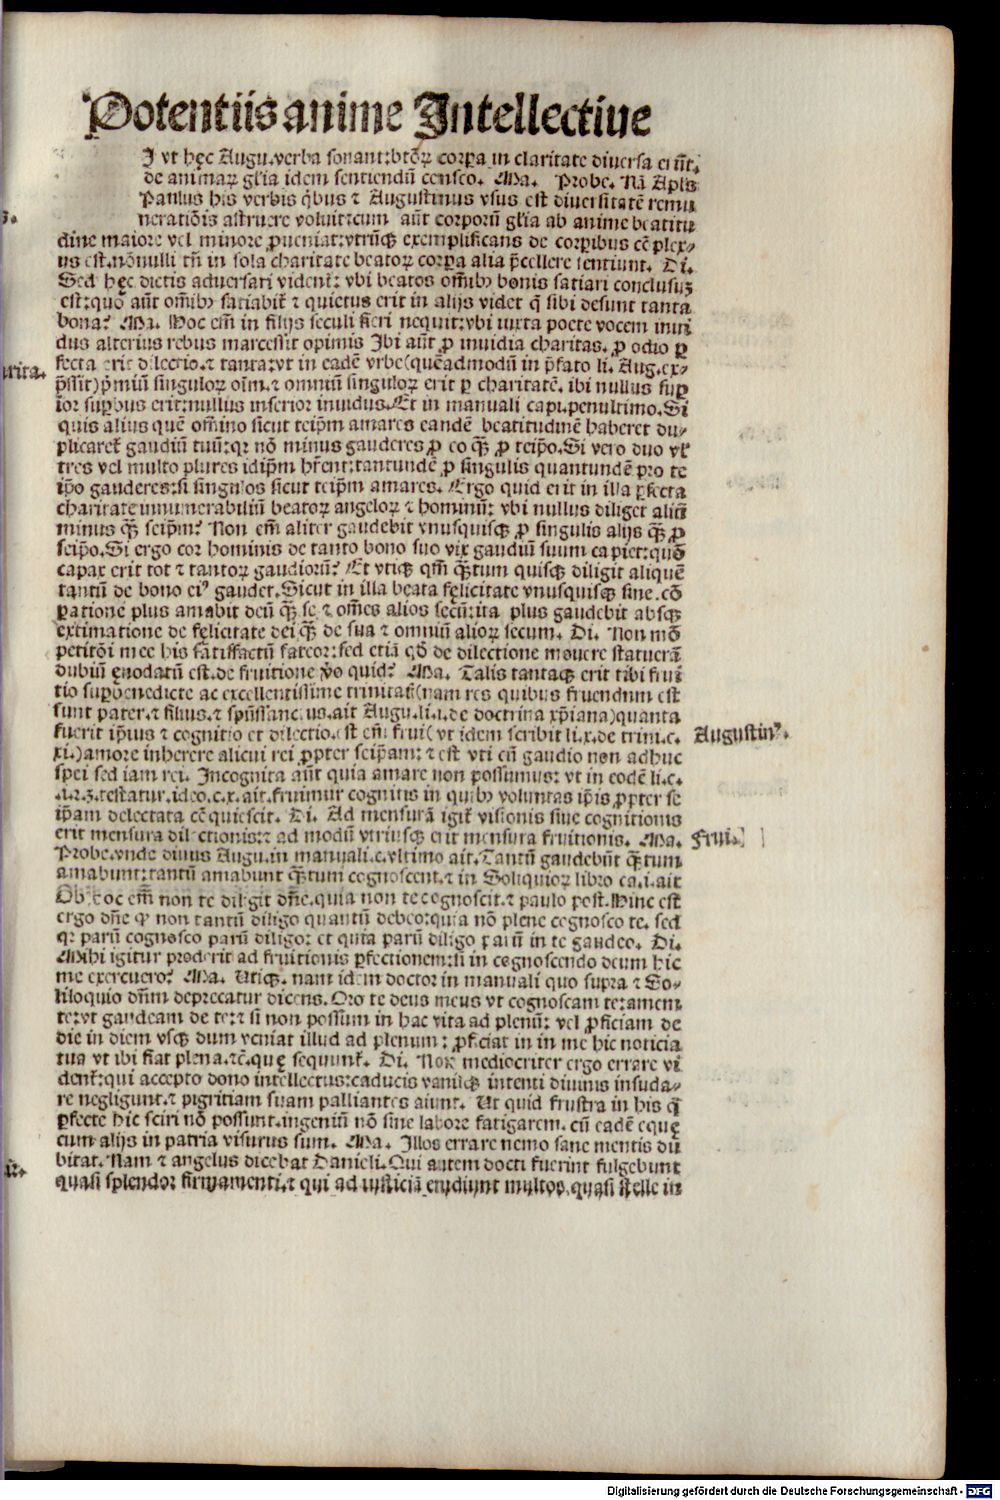 Potentiis anime Intellectiue
I vt hęc Augu.verba sonant:btõꝝ corꝑa in claritate diuersa erũt.
de animaꝝ gl̃ia idem sentiendũ censeo. Ma. Probe. Nã Apl̃s
Paulus his verbis q̃bus ⁊ Augustinus vsus est diuersitatẽ remu
neratiõis astruere voluit:cum aũt corporũ gl̃ia ab anime beatitu
dine maiore vel minore ꝓueniat:vtrũqꝫ exemplificans de corꝑibus cõplex⸗
us est.nõnulli tñ in sola charitate beatoꝝ corꝑa alia p̃cellere sentiunt. Di.
Sed hęc dictis aduersari vident᷑: vbi beatos om̃ibꝰ bonis satiari conclusuꝫ
est:quõ aũt om̃ibꝰ satiabit᷑ ⁊ quietus erit in alijs videt q̃ sibi desunt tanta
bona? Ma. Hoc em̃ in filijs seculi fieri nequit:vbi iuxta poete vocem inui
dus alterius rebus marcessit opimis Ibi aũt ꝓ inuidia charitas. ꝓ odio ꝑ
fecta erit dilectio.⁊ tanta:vt in eadẽ vrbe(quẽadmodũ in p̃fato li. Aug.ex⸗
p̃ssit)p̃miũ singuloꝝ oĩm.⁊ omniũ singuloꝝ erit ꝑ charitatẽ. ibi nullus suꝑ
ior suꝑbus erit:nullus inferior inuidus.Et in manuali capi.penultimo.Si
quis alius quẽ om̃ino sicut teip̃m amares eandẽ beatitudinẽ haberet du⸗
plicaret᷑ gaudiũ tuũ:qꝛ nõ minus gauderes ꝓ eo qꝫ̃ ꝓ teip̃o.Si vero duo vl̃
tres vel multo plures idip̃m hr̃ent:tantundẽ ꝓ singulis quantundẽ pro te
ip̃o gauderes:si singulos sicut teip̃m amares. Ergo quid erit in illa ꝑfecta
charitate innumerabiliũ beatoꝝ angeloꝝ ⁊ hominũ: vbi nullus diliget aliũ
minus qꝫ̃ seip̃m? Non em̃ aliter gaudebit vnusquisqꝫ ꝓ singulis alijs qꝫ̃ ꝓ
seip̃o.Si ergo cor hominis de tanto bono suo vix gaudiũ suum capiet:quõ
capax erit tot ⁊ tantoꝝ gaudiorũ? Et vtiqꝫ qm̃ qꝫ̃tum quisqꝫ diligit aliquẽ
tantũ de bono eiꝰ gaudet.Sicut in illa beata fęlicitate vnusquisqꝫ sine cõ
ꝑatione plus amabit deũ qꝫ̃ se ⁊ om̃es alios secũ:ita plus gaudebit absqꝫ
extimatione de fęlicitate dei qꝫ̃ de sua ⁊ omniũ alioꝝ secum. Di. Non mõ
petitõi mee his sãtisfactũ fateor:sed etiã qd̃ de dilectione mouere statuerã
dubiũ ęnodatũ est.de fruitione ꝟo quid? Ma. Talis tantaqꝫ erit tibi frui
tio suꝑbenedicte ac excellentissime trinitat̃(nam res quibus fruendum est
sunt pater.⁊ filius.⁊ spũssanctus.ait Augu.li.i.de doctrina xp̃iana)quanta
fuerit ip̃ius ⁊ cognitio et dilectio.est em̃ frui( vt idem scribit li.x.de trini.c.
xi.)amore inherere alicui rei ꝓpter seip̃am: ⁊ est vti cũ gaudio non adhuc
spei sed iam rei. Incognita aũt quia amare non possumus: vt in eodẽ li.c.
.i.⁊.ꝫ.testatur.ideo.c.x.ait.fruimur cognitis in quibꝰ voluntas ip̃is ꝓpter se
ip̃am delectata cõquiescit. Di. Ad mensurã igit᷑ visionis siue cognitionis
erit mensura dilectionis:⁊ ad modũ vtriusqꝫ erit mensura fruitionis. Ma.
Probe.vnde diuus Augu.in manuali.c.vltimo ait.Tantũ gaudebũt qꝫ̃tum
amabunt:tantũ amabunt qꝫ̃tum cognoscent.⁊ in Soliquioꝝ libro ca.i.ait
Ob hoc em̃ non te diligit dñe.quia non te cognoscit.⁊ paulo post.Hinc est
ergo dñe ꝙ non tantũ diligo quantũ debeo:quia nõ plene cognosco te. sed
qꝛ parũ cognosco parũ diligo: et quia parũ diligo parũ in te gaudeo. Di.
Mihi igitur proderit ad fruitionis ꝑfectionem:si in cognoscendo deum hic
me exercuero? Ma. Utiqꝫ. nam idem doctor in manuali quo supra ⁊ So⸗
liloquio dñm deprecatur dicens. Oro te deus meus vt cognoscam te:amem
te:vt gaudeam de te:⁊ si non possum in hac vita ad plenũ: vel ꝓficiam de
die in diem vsqꝫ dum veniat illud ad plenum: ꝓficiat in in me hic noticia
tua vt ibi fiat plena.⁊c̃.quę sequunt᷑. Di. Non mediocriter ergo errare vi
dent᷑:qui accepto dono intellectus:caducis vanisqꝫ intenti diuinis insuda⸗
re negligunt.⁊ pigritiam suam palliantes aiunt. Ut quid frustra in his q̃
ꝑfecte hic sciri nõ possunt.ingeniũ nõ sine labore fatigarem. cũ eadẽ eque
cum alijs in patria visurus sum. Ma. Illos errare nemo sane mentis du
bitat. Nam ⁊ angelus dicebat Danieli.Qui autem docti fuerint fulgebunt
quasi splendor firmamenti.⁊ qui ad iusticiã erudiunt multos.quasi stelle in
Augustinꝰ.
Frui.
Digitalisierung gefördert durch die Deutsche Forschungsgemeinschaft - DFG